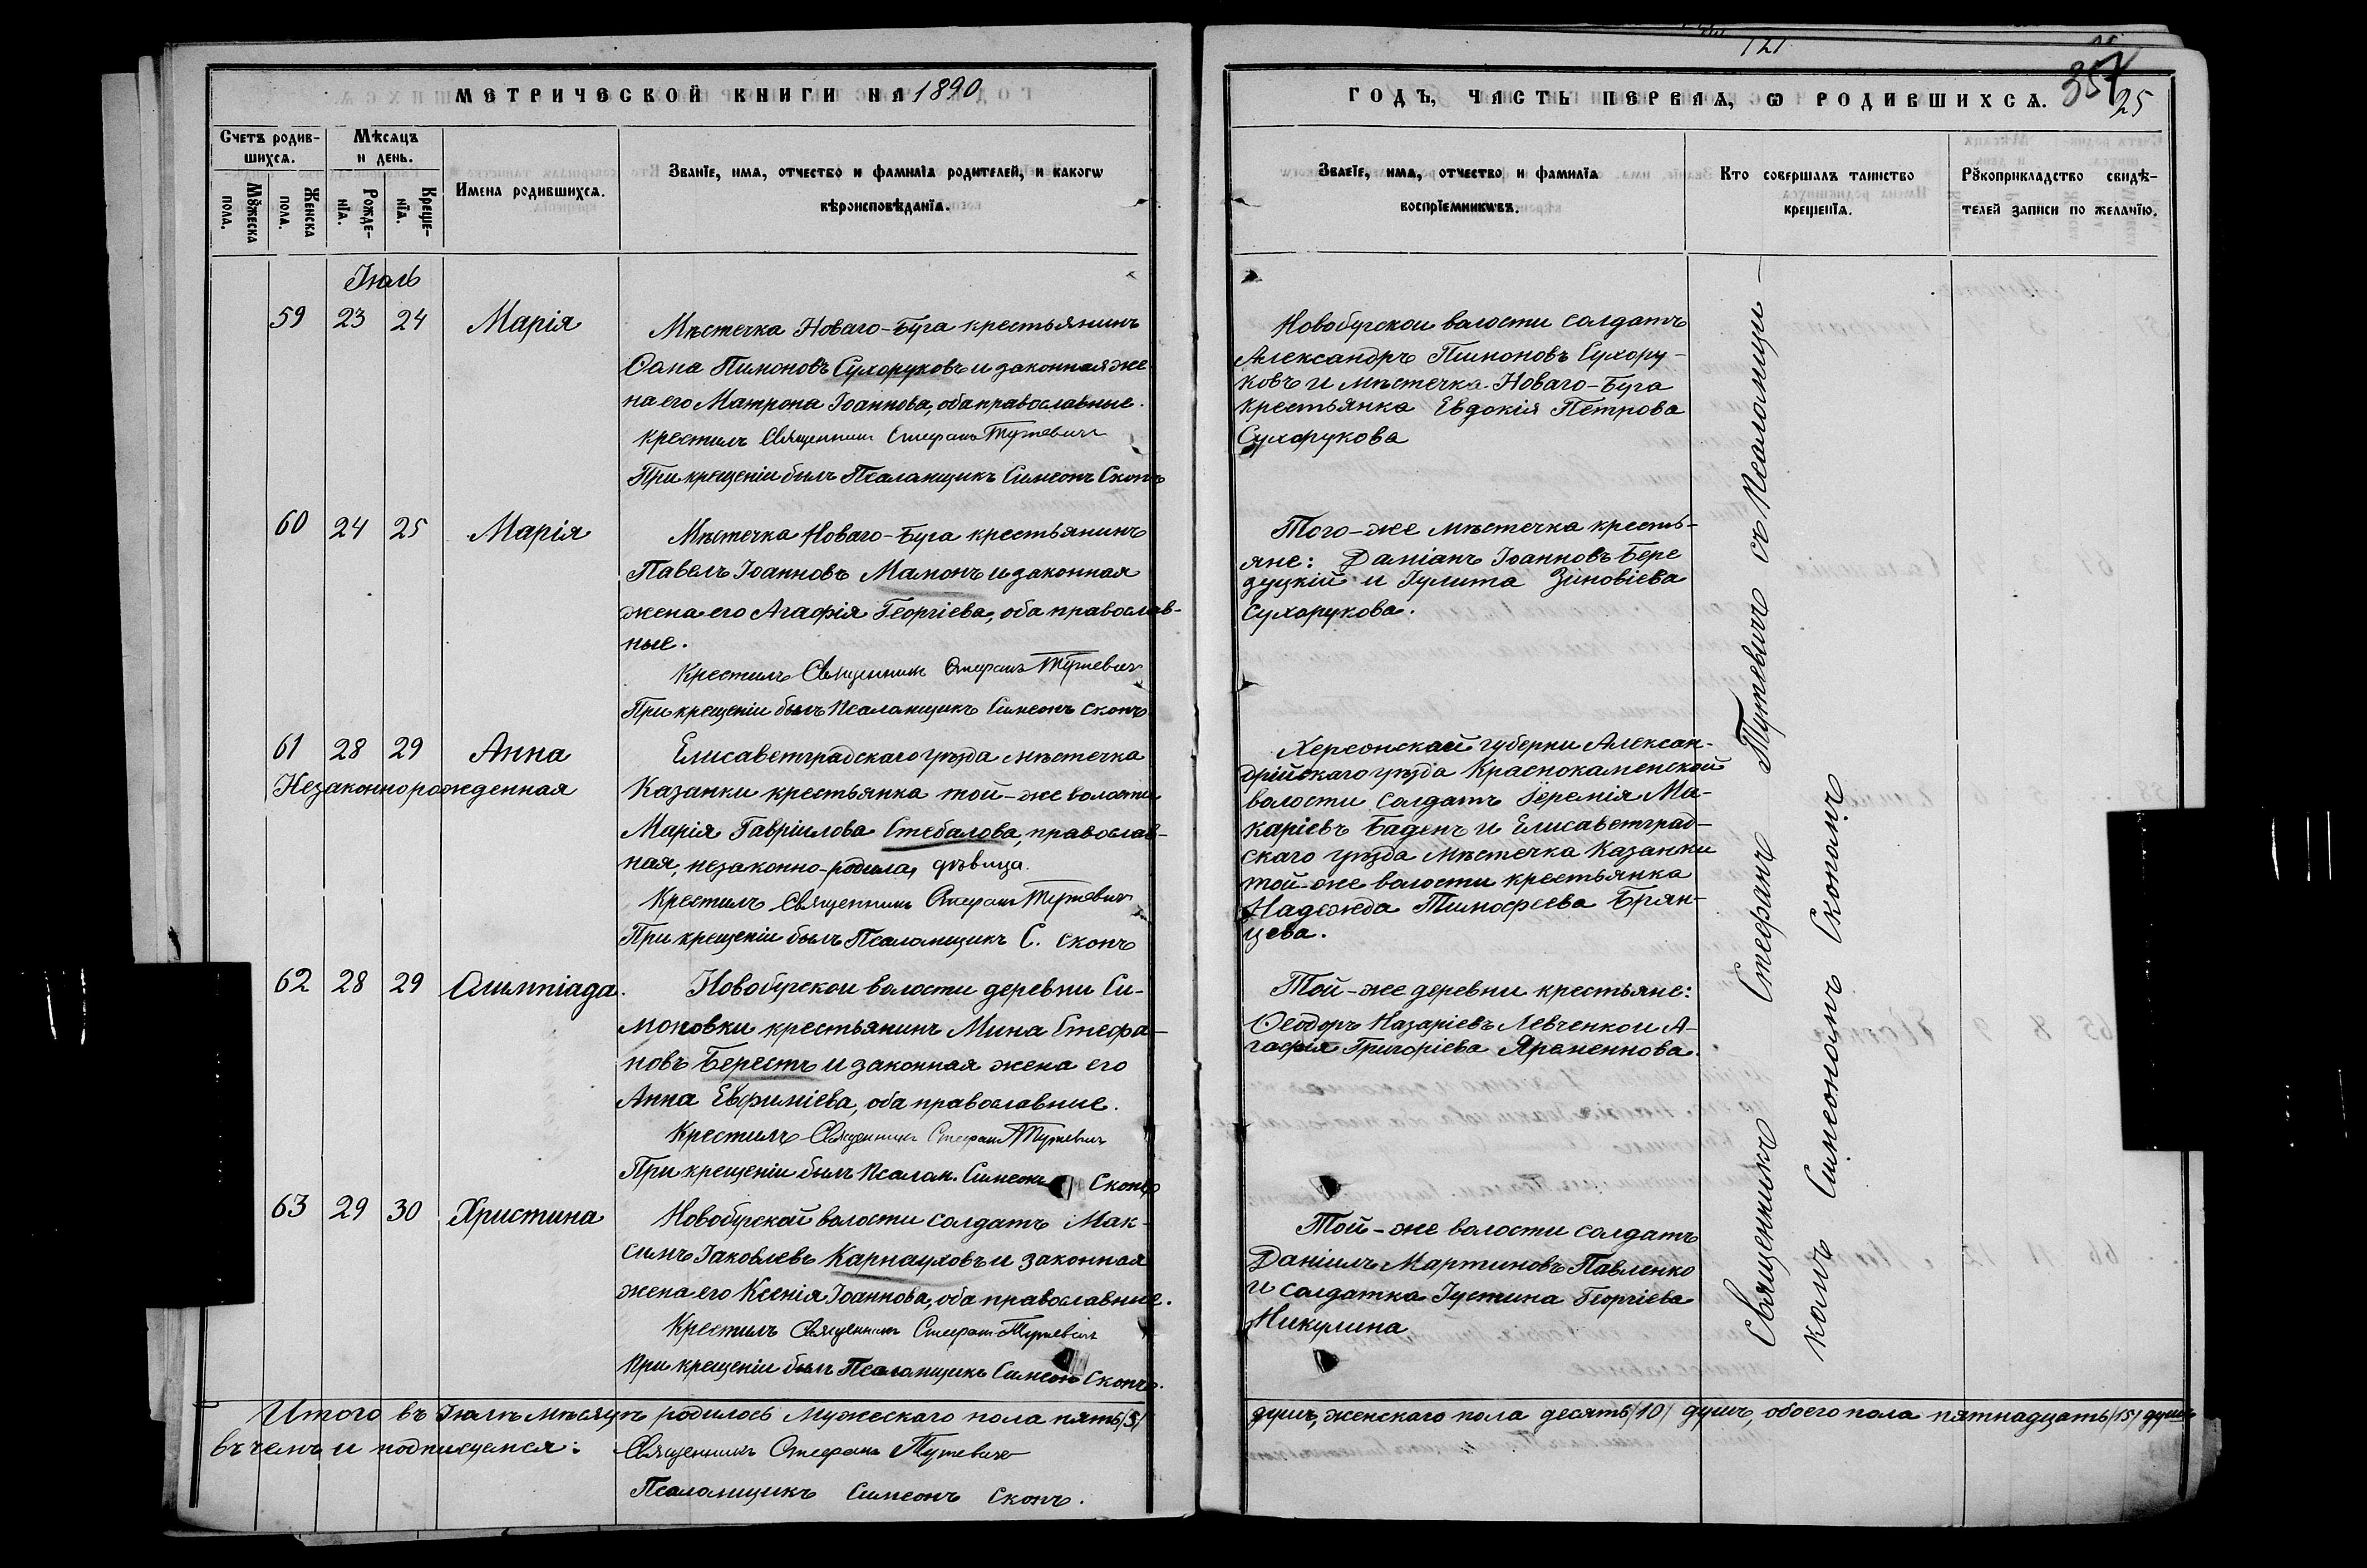 121
357
25
МЕТРИЧЕСКОЙ КНИГИ НА 1890
Счетъ родившихся.
Мѣсяцъ и день.
Мужеска пола.
Женска пола.
Рожденїя.
Крещенїя.
Имена родившихся.
Званїе, имя, отчество и фамилїя родителей, и какогѡ
вѣроисповѣданїя.
Іюль
59 23 24 Марія
Мѣстечка Новаго-Буга крестьянинъ
Сава Пимоновъ Сухоруковъ и законная же
на его Матрона Іоаннова, оба православные.
Крестилъ Священникъ Стефанъ Тутевичъ
При крещеніи былъ Псаломщикъ Симеонъ Скопъ
60 24 25 Марія
Мѣстечка Новаго-Буга крестьянинъ
Павелъ Іоанновъ Мамонъ и законная
жена его Агафія Георгіева, оба православ-
ные.
Крестилъ Священникъ Стефанъ Тутевичъ
При крещеніи былъ Псаломщикъ Симеонъ Скопъ
61 28 29 Анна
Незаконнорожденная
Елисаветградскаго уѣзда мѣстечка
Казанки крестьянка той-же волости
Марія Гавріилова Стебалова, православ-
ная, незаконно-родила, дѣвица.
Крестилъ Священникъ Стефанъ Тутевичъ
При крещеніи былъ Псаломщикъ С. Скопъ
62 28 29 Олимпіада.
Новобугской волости деревни Си-
моновки крестьянинъ Мина Стефа-
новъ Берестъ и законная жена его
Анна Евфиміева, оба православные.
Крестилъ Священникъ Стефанъ Тутевичъ
При крещеніи былъ Псалом. Симеонъ Скопъ
63 29 30 Христина
Новобугской волости солдатъ Мак-
симъ Іаковлевъ Карнауховъ и законная
жена его Ксенія Іоаннова, оба православные.
Крестилъ Священникъ Стефанъ Тутевичъ
При крещеніи былъ Псаломщикъ Симеонъ Скопъ.
Итого въ Іюлѣ мѣсяцѣ родилось мужескаго пола пять /5/
въ чемъ и подписуемся: Священникъ Стефанъ Тутевичъ
Псаломщикъ Симеонъ Скопъ.
ГОДЪ, ЧАСТЬ ПЕРВАЯ, Ѡ РОДИВШИХСЯ.
Званїе, имя, отчество и фамилїя
воспрїемникѡвъ.
Кто совершалъ таинство
крещенїя.
Рѹкоприкладство свидѣ-
телей записи по желанїю.
Новобугской волости солдатъ
Александръ Пимоновъ Сухору-
ковъ и мѣстечка Новаго-Буга
крестьянка Евдокія Петрова
Сухорукова
Того-же мѣстечка кресть-
яне: Даміанъ Іоанновъ Бере
дуцкій и Іулита Зиновіева
Сухорукова.
Херсонской губерни Алексан-
дрійскаго уѣзда Краснокаменской
волости солдатъ Іеремія Ма-
каріевъ Баденъ и Елисаветград-
скаго уѣзда мѣстечка Казанки
той-же волости крестьянка
Надежда Тимофеева Брян-
цева.
Той-же деревни крестьяне:
Ѳеодоръ Назаріевъ Левченко и А-
гафія Григоріева Яременкова.
Той-же волости солдатъ
Даніилъ Мартиновъ Павленко
и солдатка Іустина Георгіева
Никулина
Священникъ Стефанъ Тутевичъ съ Псаломщи-
комъ Симеономъ Скопомъ
душъ, женскаго пола десять /10/ душъ, обоего пола пятнадцать /15/ душъ